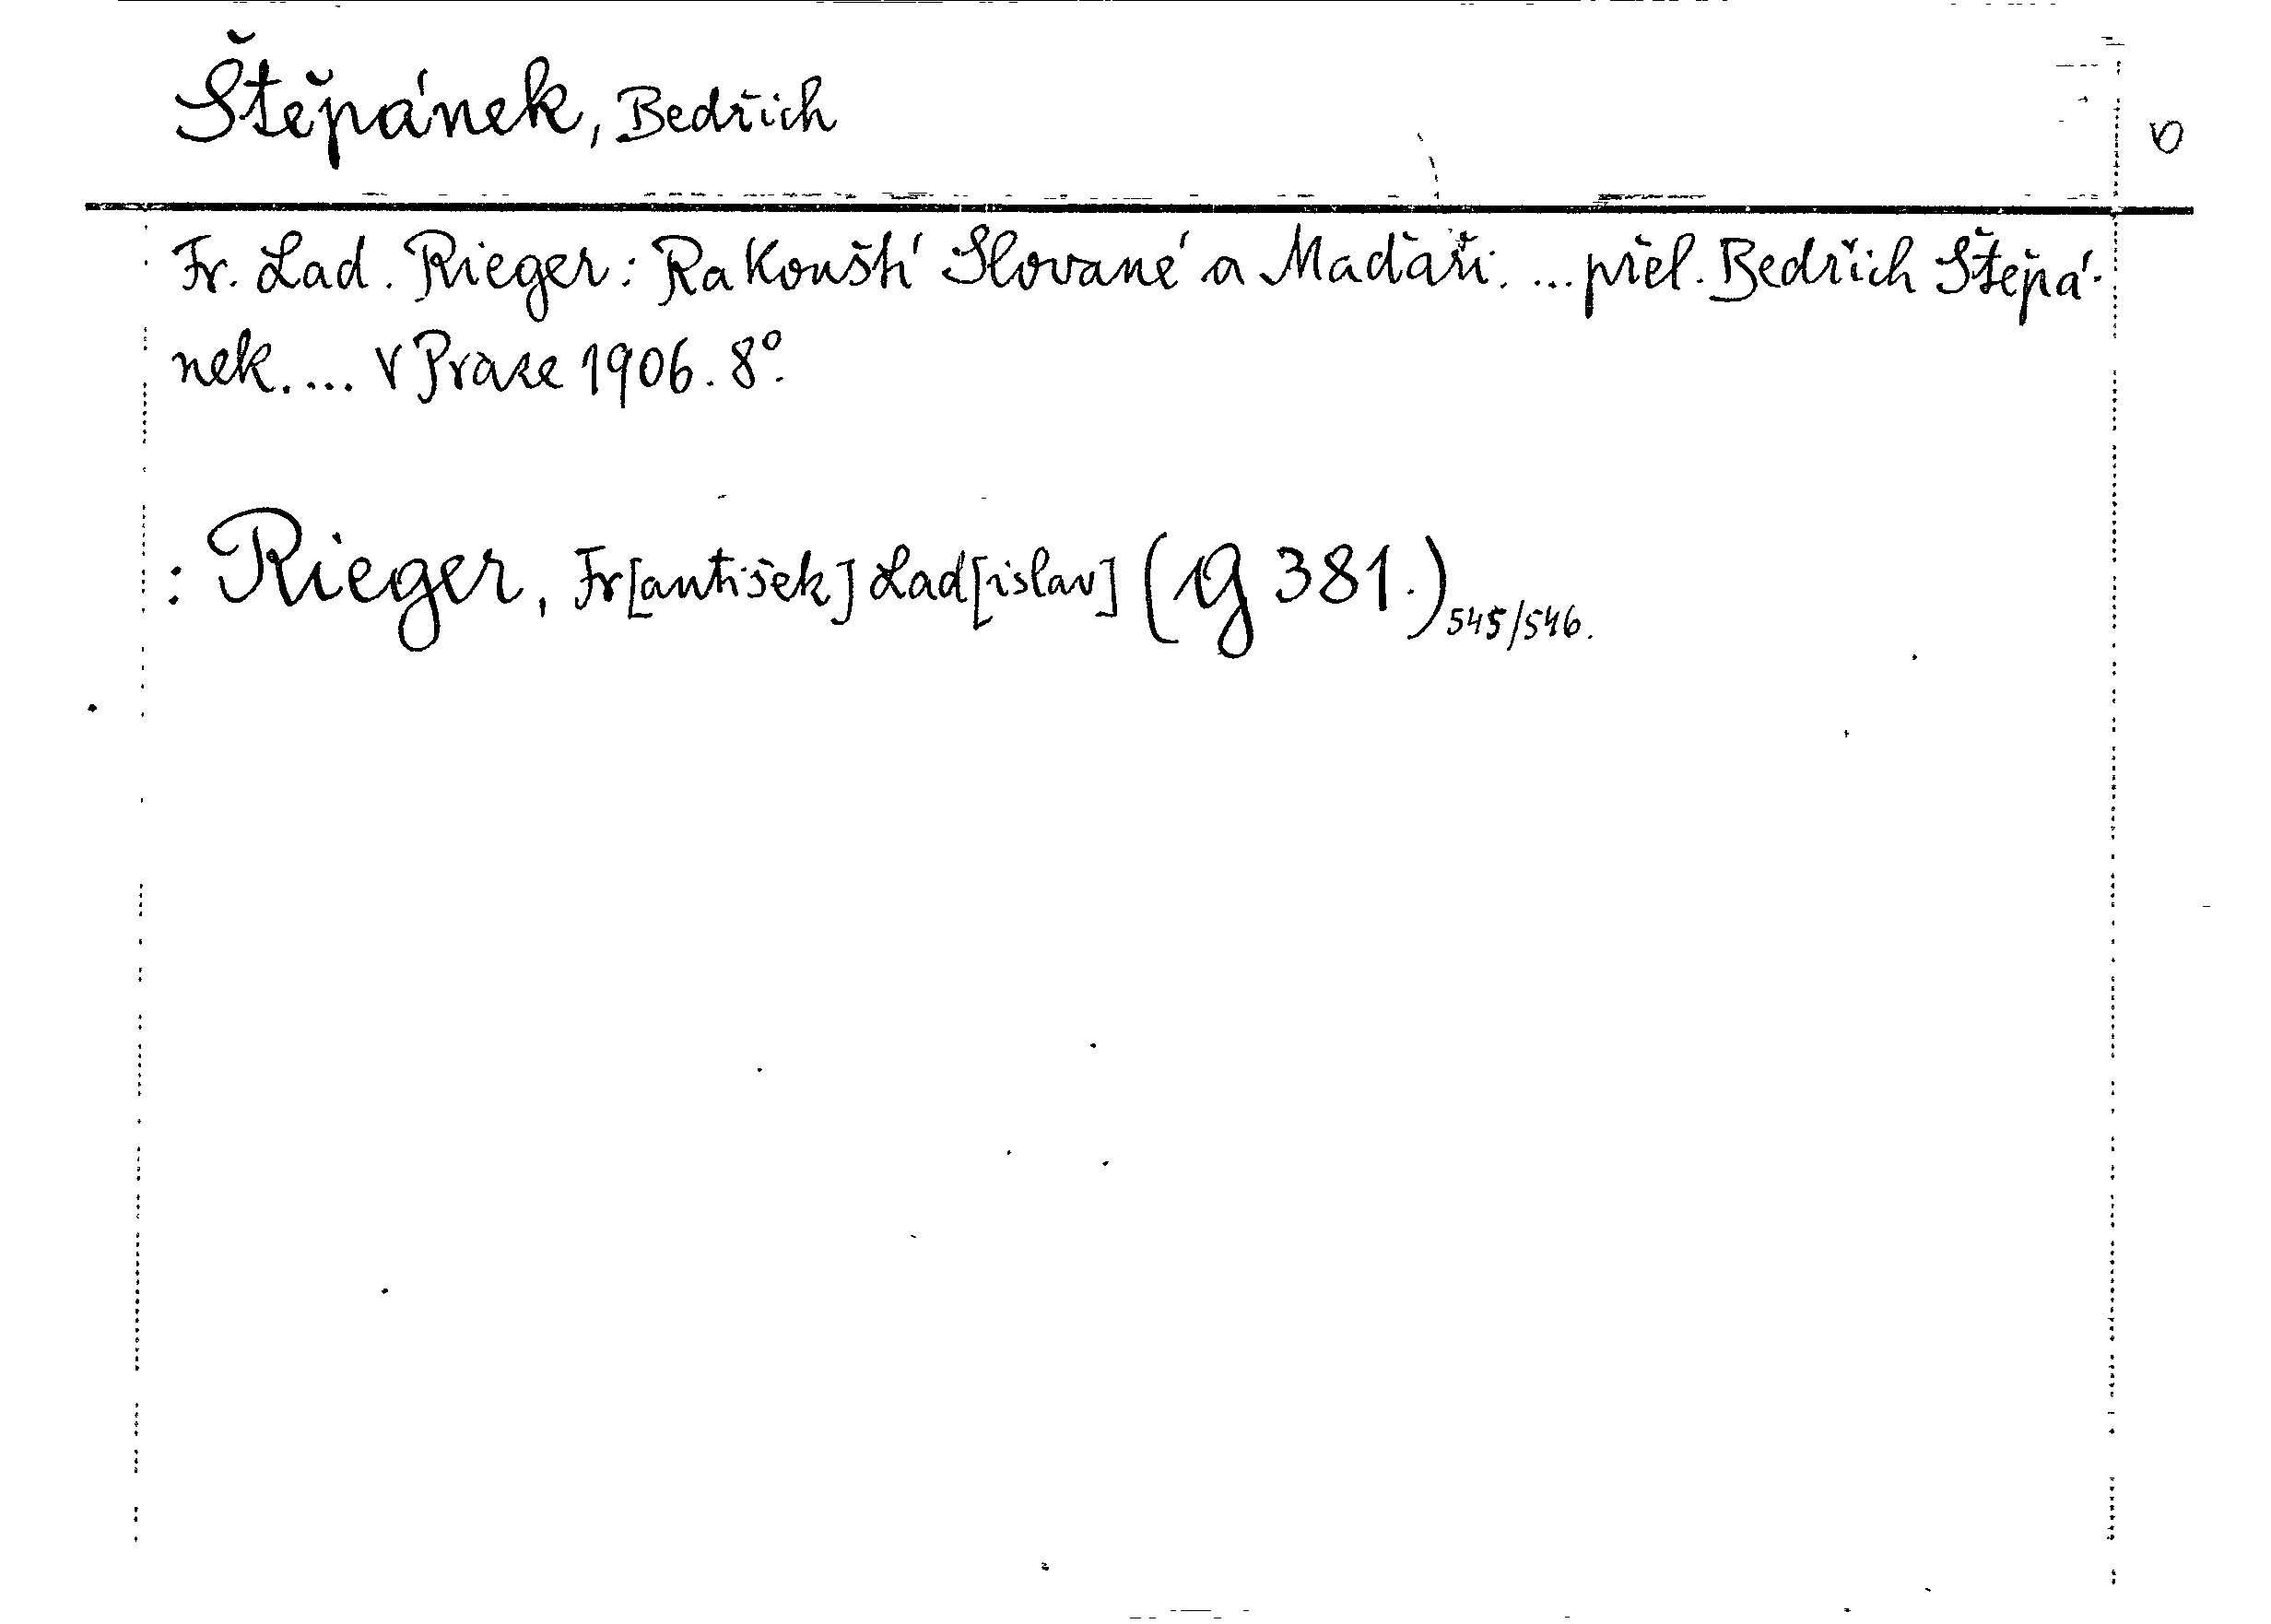 Štěpánek, Bedřich
Fr. Lad. Rieger: Rakouští Slované a Maďaři. ... přel. Bedřich Štěpá-
nek. ... V Praze 1906. 8°.
: Rieger, Fr[antišek] Lad[islav] (19 g 381.) 545/546.